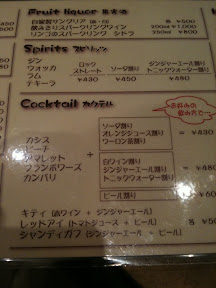 Fruit liquor 果実酒
自家製サングリア(赤・白) 各 ¥500
飲みきりスパークリングワイン 200ml ¥1,000
リンゴのスパークリング シードラ 250ml ¥800
Spirits スピリッツ
ジン
ウォッカ
ラム
テキーラ
ロック
ストレート ソーダ割り ジンジャーエール割り
トニックウォーター割り
¥430 ¥450 ¥480
Cocktail カクテル
お好みの
飲み方で
カシス
ピーチ
アマレット
フランボワーズ
カンパリ
+
ソーダ割り
オレンジジュース割り
ウーロン茶割り
白ワイン割り
ジンジャーエール割り
トニックウォーター割り
ビール割り
キティ (赤ワイン + ジンジャーエール)
レッドアイ (トマトジュース + ビール) 各 ¥500
シャンディガフ (ジンジャーエール + ビール)